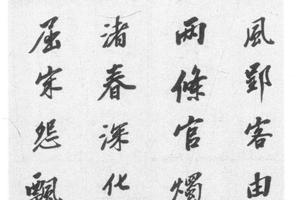 風郢客由
兩條官燭
渚春深化
屈宋怨飄